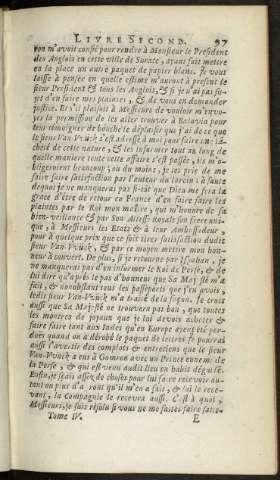 LIVRE SECOND. 97
ron m'avoit confié pour rendre à Monsieur le President
des Anglois en cette ville de Surate, ayant fait mettre
en la place un autre paquet de papier blanc. Je vous
laisse à penser en quelle estime m'auront à present le
sieur President & tous les Anglois, & si je n'ai pas su-
jet d'en faire mes plaintes, & de vous en demander
justice. Et s'il plaisoit à Messieurs de vouloir m'envo-
yer la permission de les aller trouver à Batavia pour
leur témoigner de bouche le déplaisir que j'ai de ce que
le sieur Van-Vvück s'est adressé à moi pour faire une lâ-
cheté de cette nature, & les informer tout au long de
quelle maniere toute cette affaire s'est passée, ils m'o-
bligeroient beaucoup; ou du moins, je les prie de me
faire faire satisfaction par l'auteur du larcin: à faute
dequoi je ne manquerai pas si-tôt que Dieu me fera la
grace d'être de retour en France d'en faire faire les
plaintes par le Roi mon maître, qui m'honore de sa
bien-veillance & par Son Altesse Royale son frere uni-
que, à Messieurs les Etats & à leur Ambassadeur,
pour à quelque prix que ce soit tirer satisfaction dudit
sieur Van-Vvück, & par ce moyen mettre mon hon-
neur à couvert. De plus, si je retourne par Ispahan, je
ne manquerai pas d'en informer le Roi de Perse, & de
lui dire qu'après le pas d'honneur que Sa Majesté m'a
fait, & nonobstant tous les passeports que j'en avois,
ledit sieur Van-Vvück m'a traité de la façon. Je croi
aussi que Sa Majesté ne trouvera pas bon, que toutes
les montres de joyaux que je lui devois acheter &
faire faire tant aux Indes qu'en Europe ayent été per-
dues quand on a dérobé le paquet de lettres. Je pourrai
aussi l'avertir des complots & entretiens que le sieur
Van-Vvück a eus à Gomron avec un Prince ennemi de
la Perse, & qui est venu audit lieu en habit déguisé.
Enfin, je sçais assez de choses pour lui faire recevoir au-
tant ou plus d'a ont qu'il m'en a fait, & lui le rece-
vant, la Compagnie le recevra aussi. C'est à quoi,
Messieurs, je suis résolu si vous ne me faites faire satis-
Tome IV. E